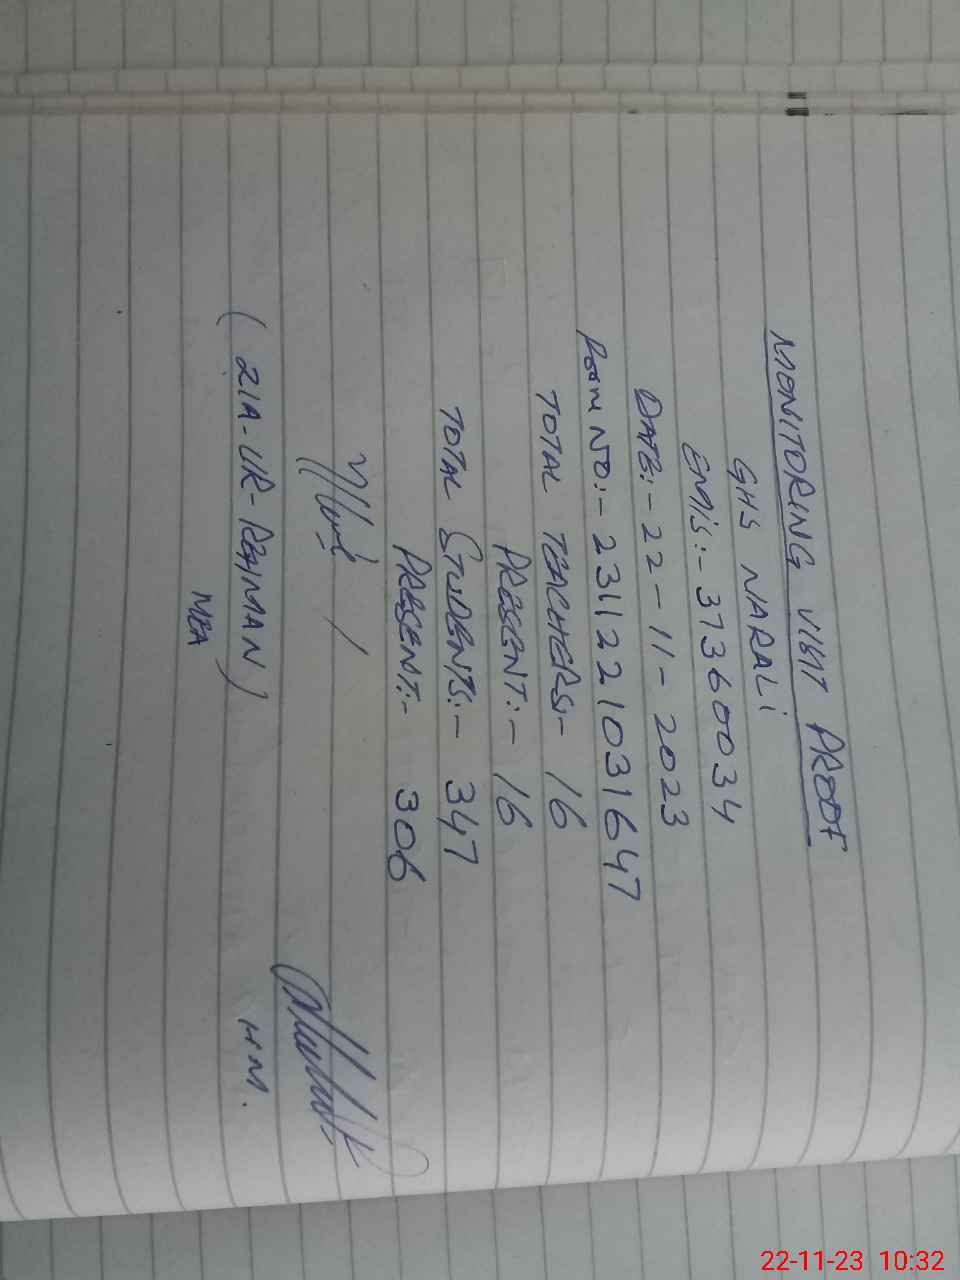 MONITORING VISIT PROOF
GHS NARALi
EMIS:- 37360034
DATE:- 22-11-2023
FORM NO:- 2311221031647
TOTAL TEACHERS:- 16
PRESENT:- 16
TOTAL STUDENTS:- 347
PRESENT:- 306
(ZIA-UR-REHMAN)
MEA
HM.
22-11-23 10:32